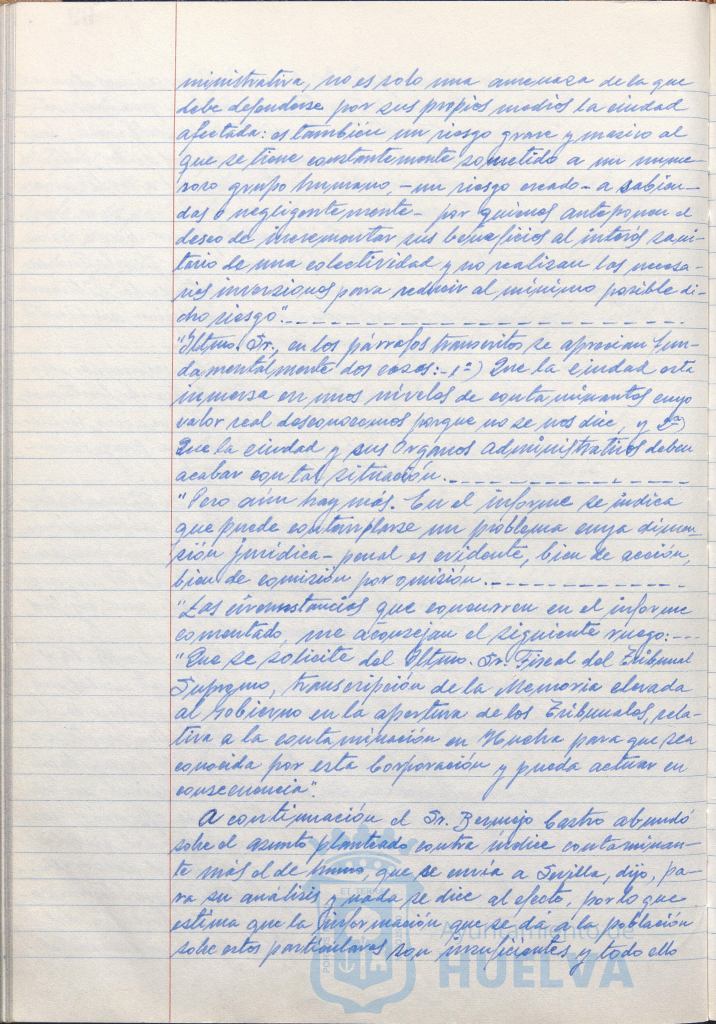 ministrativa, no es solo una amenaza de la que
debe defenderse por sus propios medios la ciudad
afectada: es también un riesgo grave y masivo al
que se tiene constantemente sometido a un nume-
roso grupo humano, - un riesgo creado - a sabien-
das o negligentemente - por quienes anteponen el
deseo de incrementar sus beneficios al interés sani-
tario de una colectividad y no realizan las necesa-
rias inversiones para reducir al mínimo posible di-
cho riesgo".
"Iltmo. Sr., en los párrafos transcritos se aprecian fun-
damentalmente dos cosas: - 1ª) Que la ciudad está
inmersa en unos niveles de contaminantes cuyo
valor real desconocemos porque no se nos dice, y 2ª)
Que la ciudad y sus Organos administrativos deben
acabar con tal situación.
"Pero aún hay más. En el informe se indica
que puede contemplarse un problema cuya dimen-
ción jurídica - penal es evidente, bien de acción,
bien de comisión por omisión.
"Las circunstancias que concurren en el informe
comentado, me aconsejan el siguiente ruego:
"Que se solicite del Iltmo. Sr. Fiscal del Tribunal
Supremo, transcripción de la Memoria elevada
al Gobierno en la apertura de los Tribunales, rela-
tiva a la contaminación en Huelva para que sea
conocida por esta Corporación y pueda actuar en
consecuencia".
A continuación el Sr. Bermejo Castro abundó
sobre el asunto planteado contra índice contaminan-
te más el de humo, que se envía a Sevilla, dijo, pa-
ra su análisis y nada se dice al efecto, por lo que
estima que la información que se dá a la población
sobre estos particulares son insuficientes y todo ello
Ayuntamiento de
HUELVA